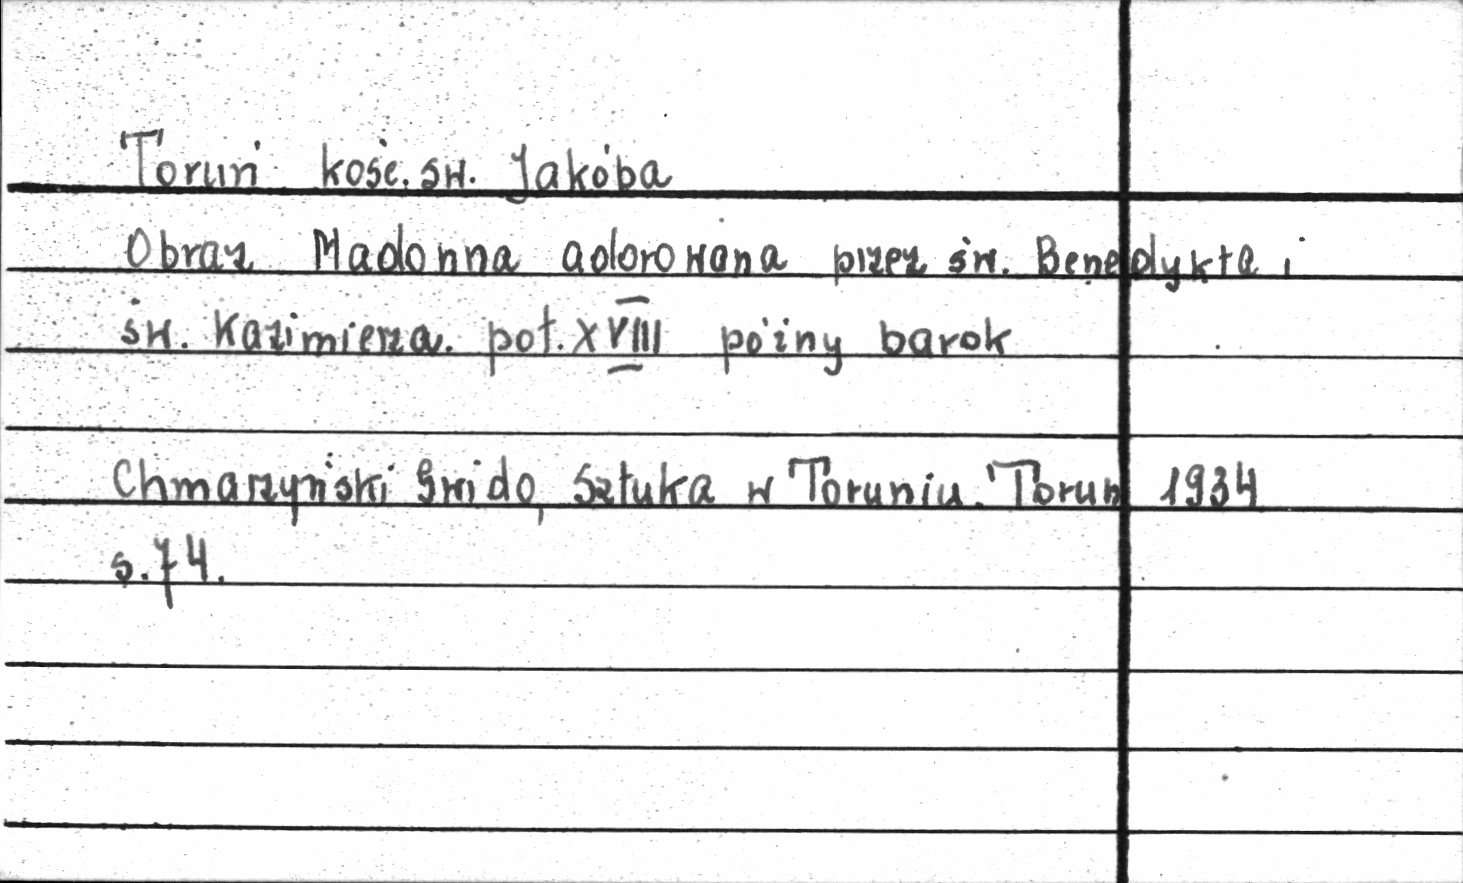 Toruń kość. św. Jakóba
Obraz Madonna adorowana przez św. Benedykta i
św. Kazimierza. poł. XVIII późny barok
Chmarzyński Gwido, Sztuka w Toruniu. Toruń 1934
s. 74.